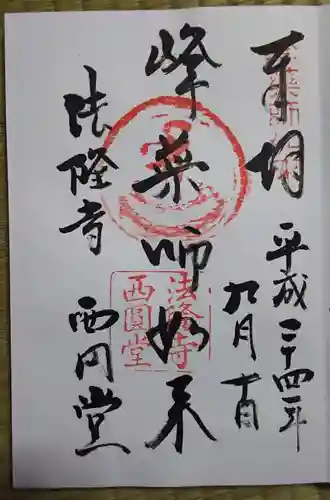 平成二十四年
九月十日
峰薬師如来
法隆寺
西円堂
法隆寺
西圓堂